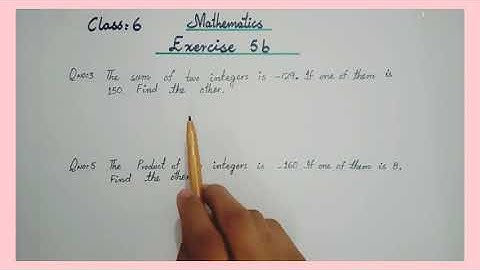 Class: 6 Mathematics
Exercise 5b
QNO:3 The sum of two integers is -129. If one of them is
150. Find the other.
QNO:5 The Product of integers is -160. If one of them is 8.
Find the other